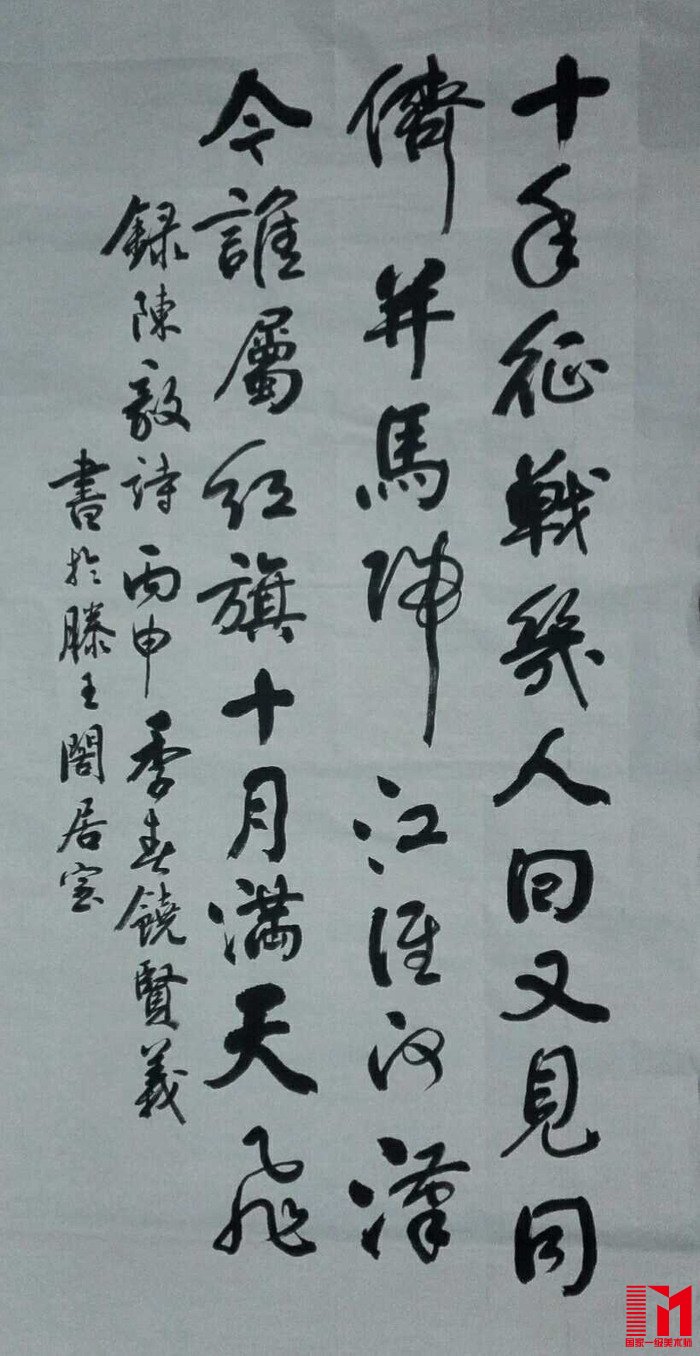 十年征戰幾人回又見同
儕并馬歸江淮河漢
今誰屬红旗十月满天飛
録陳毅詩丙申季春饒賢義
書於滕王閣居室
国家一级美术师